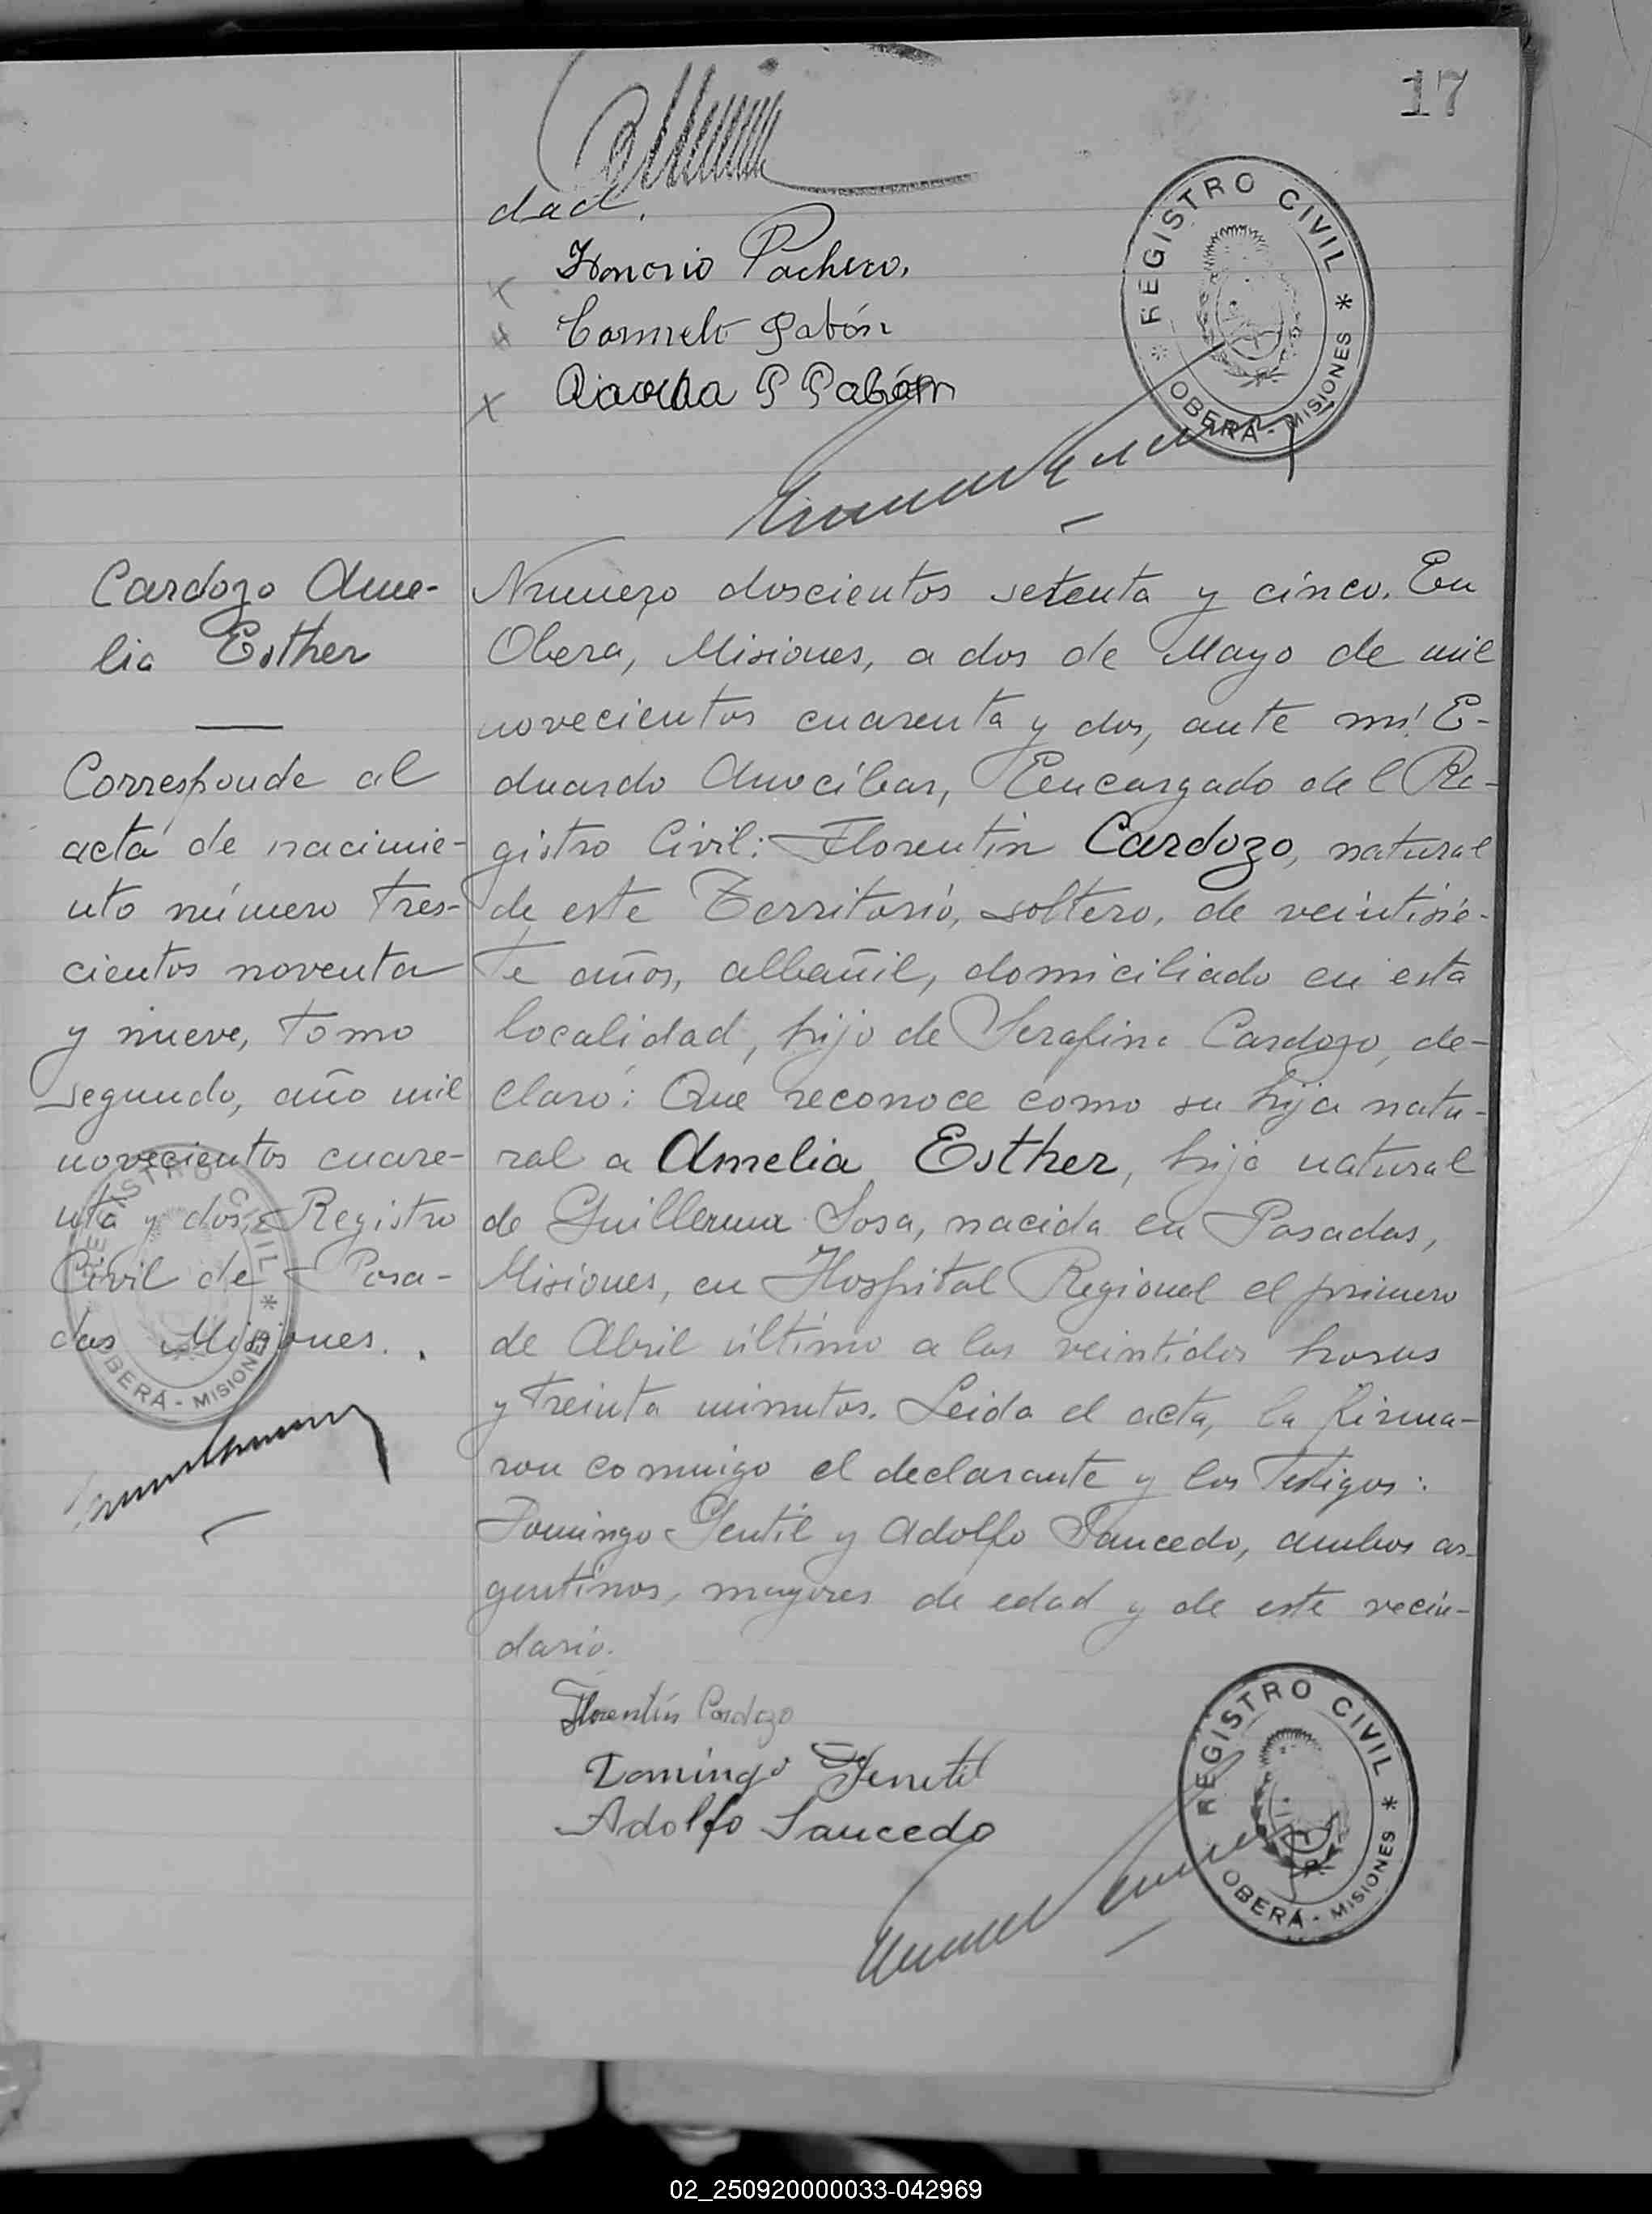 17
dad.
REGISTRO CIVIL *
OBERÁ - MISIONES
Honorio Pacheco.
Carmelo Pabón
P Pabón
Cardozo Ame-
lia Esther
Corresponde al
acta de nacimie-
nto número tres-
cientos noventa
y nueve, tomo
segundo, año mil
novecientos cuare-
nta y dos, Registro
Civil de Posa-
das Misiones.
REGISTRO CIVIL *
OBERÁ - MISIONES
Numero doscientos setenta y cinco. En
Obera, Misiones, a dos de Mayo de mil
novecientos cuarenta y dos, ante mi: E-
duardo Anocíbar, Eencargado del Re-
gistro Civil: Florentin Cardozo, natural
de este Territorio, soltero, de veintisie-
te años, albañil, domiciliado en esta
localidad, hijo de Serafina Cardozo, de-
claró: Que reconoce como su hija natu-
ral a Amelia Esther, hija natural
de Guillerma Sosa, nacida en Posadas,
Misiones, en Hospital Regional el primero
de Abril último a las veintidos horas
y treinta minutos. Leida el acta, la firma-
ron conmigo el declarante y los testigos:
Domingo Gentil y Adolfo Saucedo, ambos ar-
gentinos, mayores de edad y de este vecin-
dario.
Florentín Cardozo
Domingo Gentil
Adolfo Saucedo
REGISTRO CIVIL *
OBERÁ - MISIONES
02_250920000033-042969